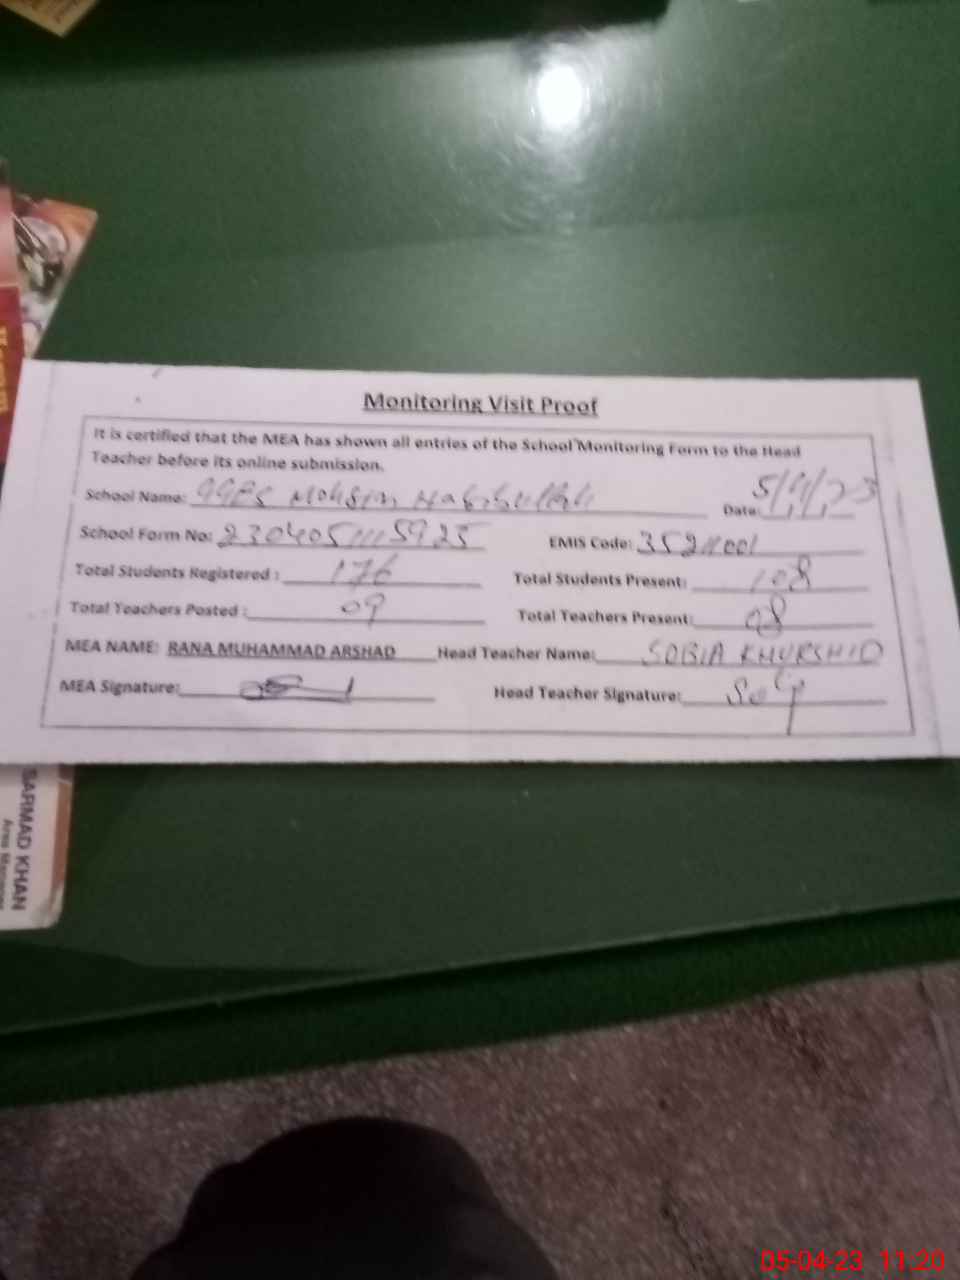 Monitoring Visit Proof
It is certified that the MEA has shown all entries of the School Monitoring Form to the Head
Teacher before its online submission.
School Name: GGPS Mohsin Habibullah Date: 5/4/23
School Form No: 2304051115925 EMIS Code:
Total Students Registered : 176 Total Students Present: 108
Total Teachers Posted : 09 Total Teachers Present: 08
MEA NAME: RANA MUHAMMAD ARSHAD Head Teacher Name: SOBIA KHURSHID
MEA Signature: Head Teacher Signature:
SARMAD KHAN
Area Manager
05-04-23 11:20